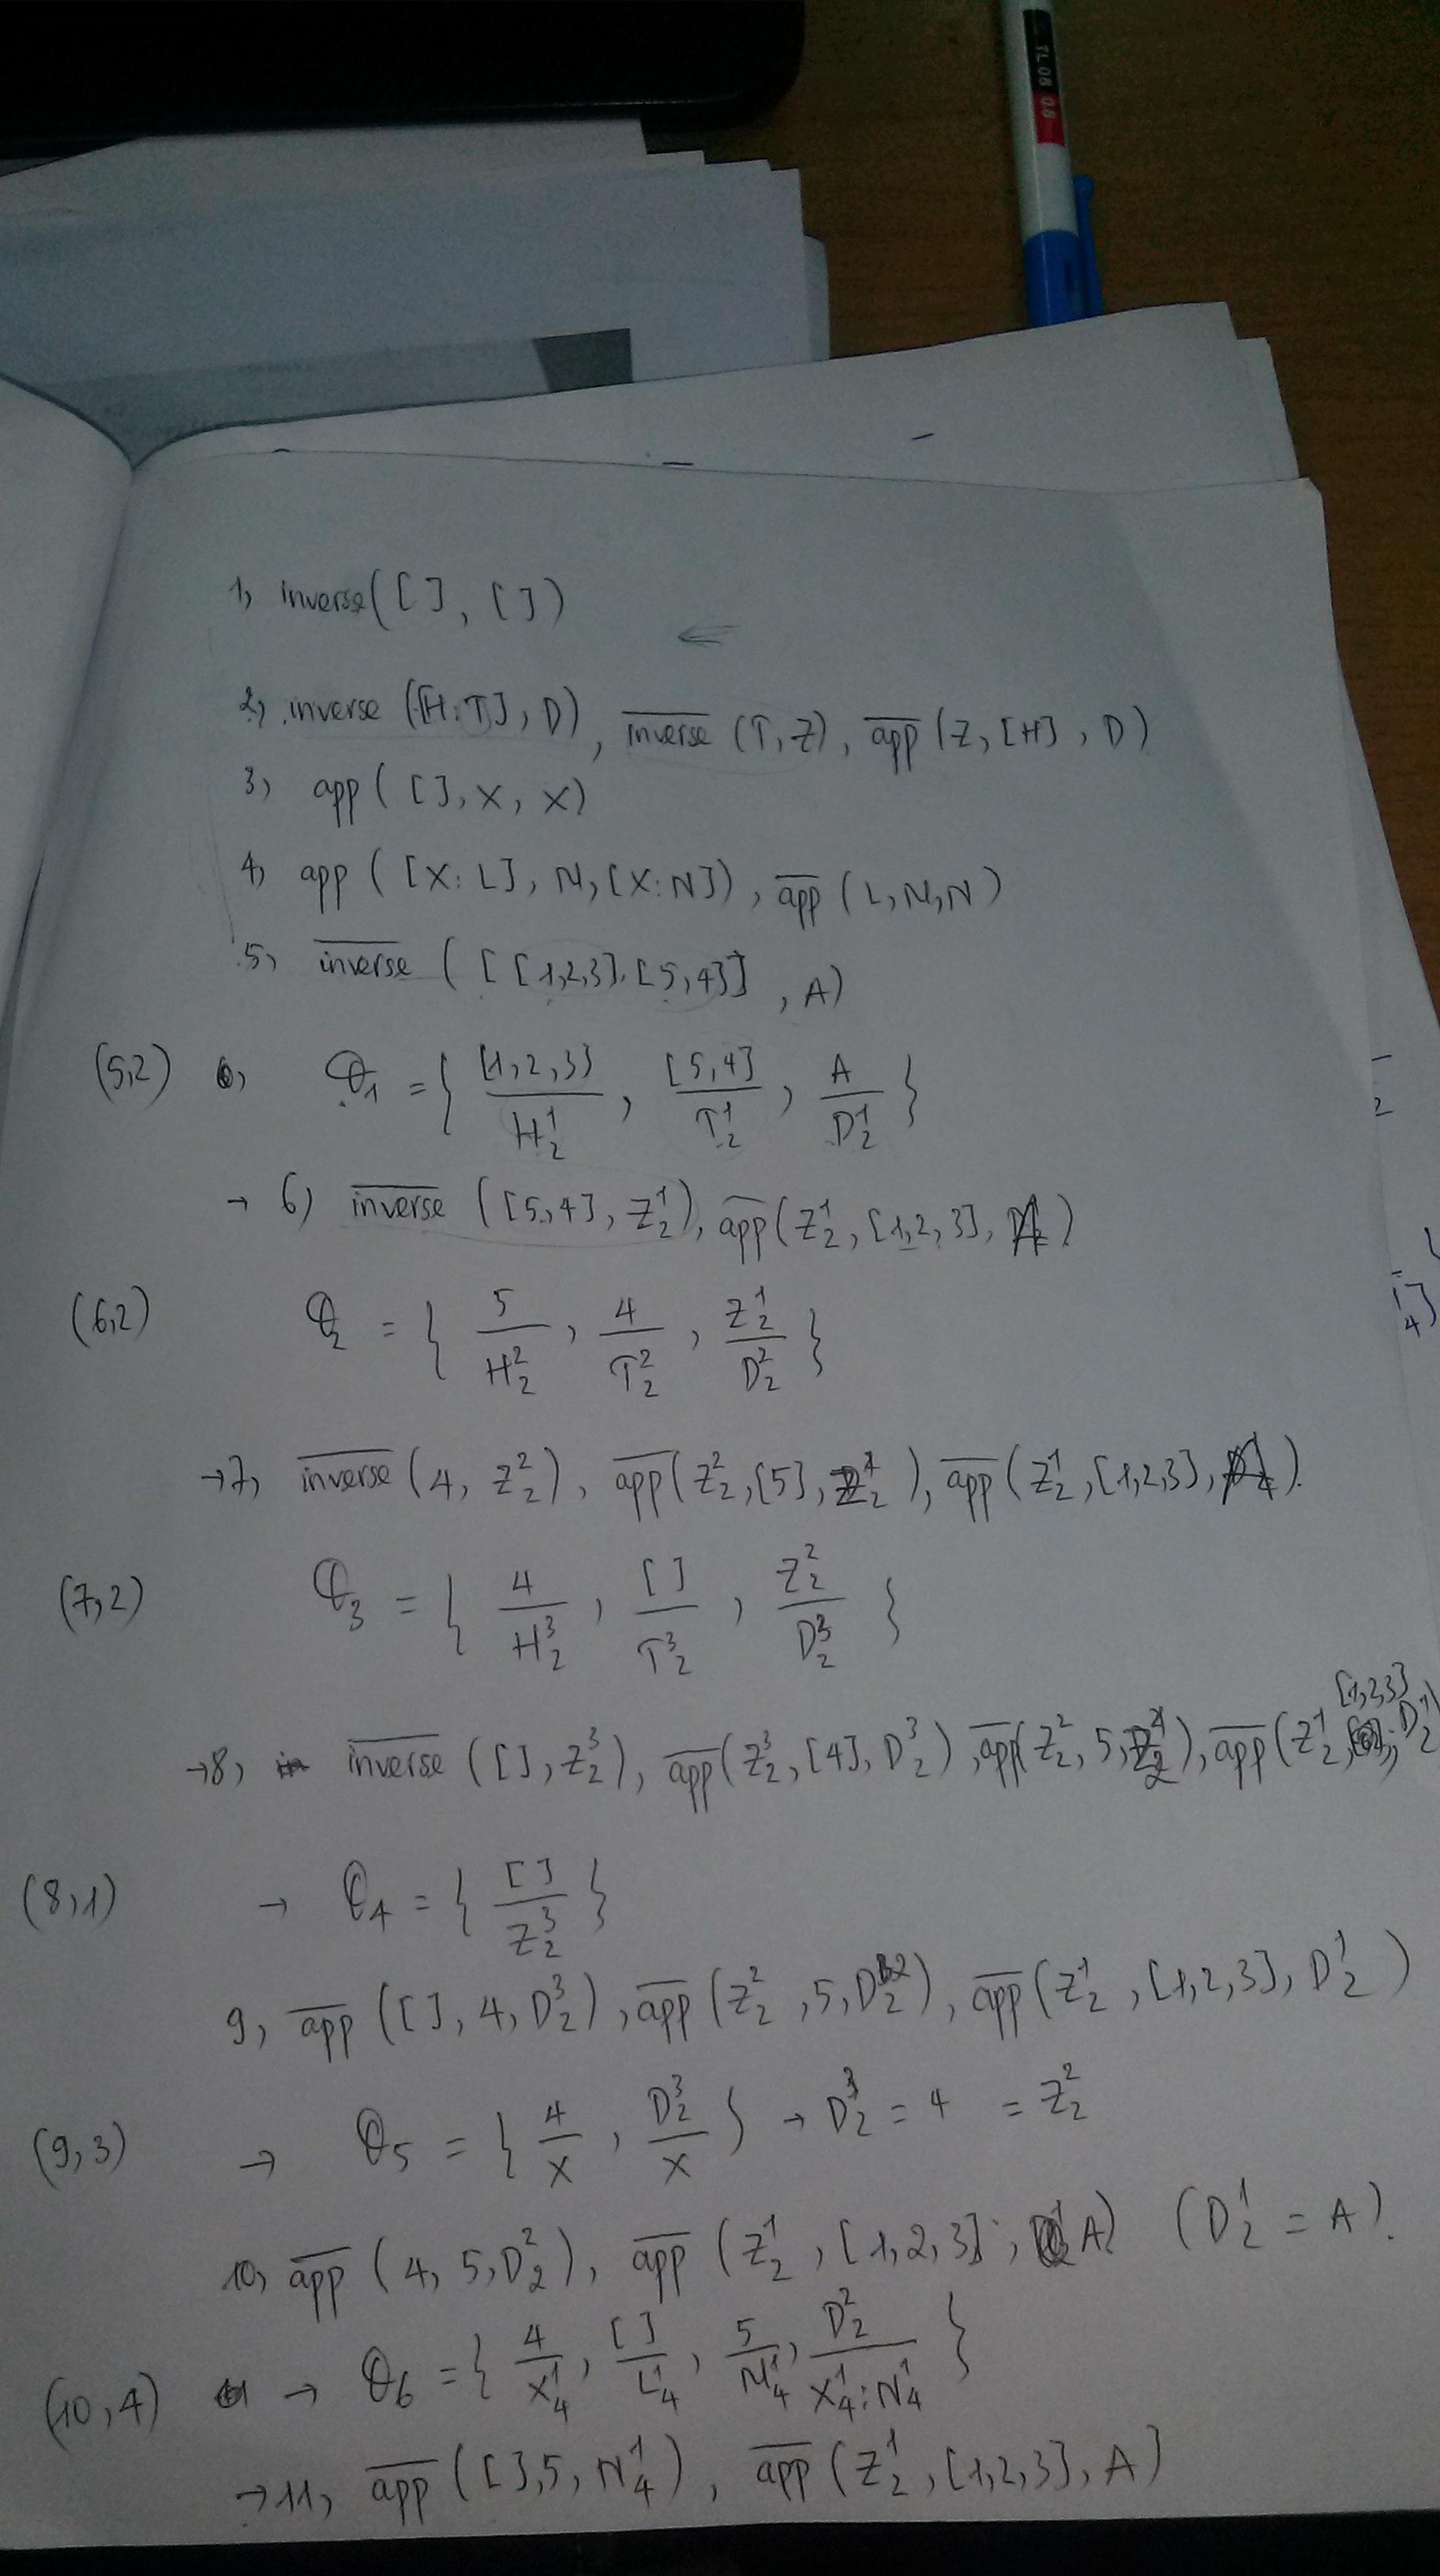 TL 08 0.8
1) inverse([ ], [ ])
⇐
2) inverse ([H:T], D), \overline{inverse} (T, Z), \overline{app} (Z, [H], D)
3) app ([ ], X, X)
4) app ([X:L], M, [X:N]), \overline{app} (L, M, N)
5) \overline{inverse} ([[1,2,3].[5,4]], A)
(5,2) θ_1 = { [1,2,3]/H_2^1, [5,4]/T_2^1, A/D_2^1 }
→ 6) \overline{inverse} ([5,4], Z_2^1), \overline{app} (Z_2^1, [1,2,3], A)
(6,2) θ_2 = { 5/H_2^2, 4/T_2^2, Z_2^1/D_2^2 }
→7) \overline{inverse} (4, Z_2^2), \overline{app} (Z_2^2, [5], Z_2^1), \overline{app} (Z_2^1, [1,2,3], ).
(7,2) θ_3 = { 4/H_2^3, [ ]/T_2^3, Z_2^2/D_2^3 }
→8) \overline{inverse} ([ ], Z_2^3), \overline{app} (Z_2^3, [4], D_2^3), \overline{app} (Z_2^2, 5, ), \overline{app} (Z_2^1, [1,2,3], D_2^1)
(8,1) → θ_4 = { [ ]/Z_2^3 }
9) \overline{app} ([ ], 4, D_2^3), \overline{app} (Z_2^2, 5, D_2^2), \overline{app} (Z_2^1, [1,2,3], D_2^1)
(9,3) → θ_5 = { 4/X, D_2^3/X } → D_2^3 = 4 = Z_2^2
10) \overline{app} (4, 5, D_2^2), \overline{app} (Z_2^1, [1,2,3], A) (D_2^1 = A).
(10,4) → θ_6 = { 4/X_4^1, [ ]/L_4^1, 5/M_4^1, D_2^2/X_4^1:N_4^1 }
→11) \overline{app} ([ ], 5, N_4^1), \overline{app} (Z_2^1, [1,2,3], A)